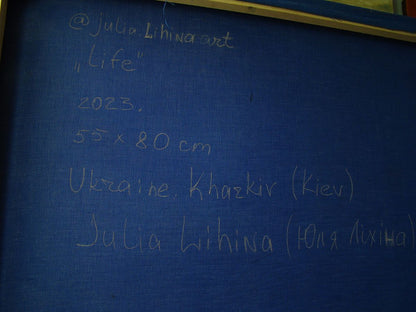 @julia.Lihina.art
„Life”
2023.
55 x 80 cm
Ukraine. Kharkiv (Kiev)
Julia Lihina (Юля Ліхіна)